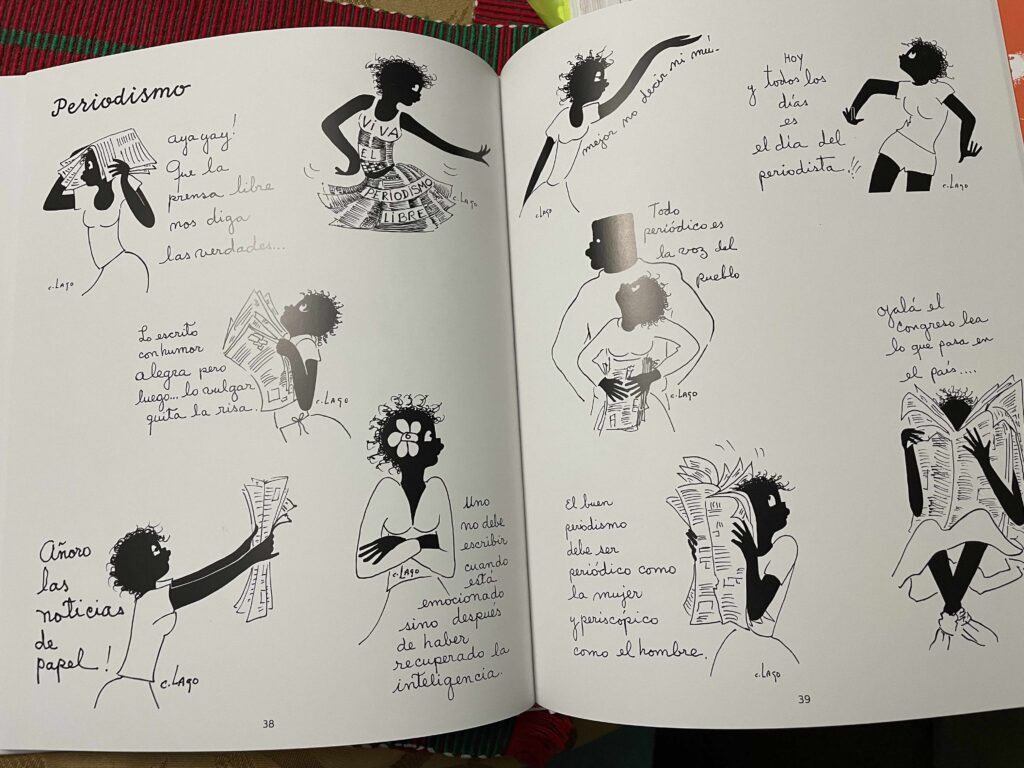 Periodismo
ayayay!
Que la
prensa libre
nos diga
las verdades...
c. Lago
VIVA
EL
PERIODISMO
LIBRE
c. Lago
Lo escrito
con humor
alegra pero
luego... lo vulgar
quita la risa.
c. Lago
Añoro
las
noticias
de
papel!
c. Lago
Uno
no debe
escribir
cuando
esta
emocionado
sino después
de haber
recuperado la
inteligencia.
c. Lago
38
mejor no decir ni mú.
c. Lago
Hoy
y todos los
días
es
el día del
periodista!!
c. Lago
Todo
periódico es
la voz del
pueblo
c. Lago
Ojalá el
congreso lea
lo que pasa en
el país....
El buen
periodismo
debe ser
periódico como
la mujer
y periscópico
como el hombre.
c. Lago
39